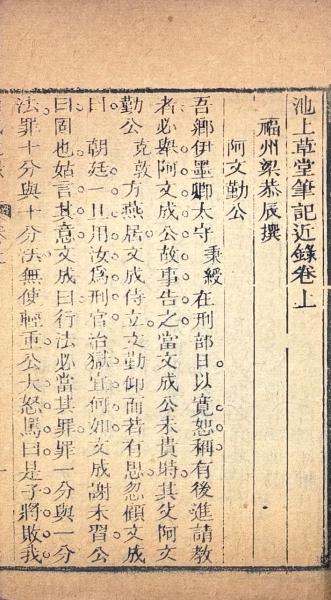 池上草堂筆記近錄卷上
福州梁恭辰撰
阿文勤公
吾鄉伊墨卿太守秉綬在刑部日以寬恕稱有後進請教
者必舉阿文成公故事告之當文成公未貴時其父阿文
勤公克敦方燕居文成侍立文勤仰而若有思忽顧文成
曰朝廷一旦用汝爲刑官治獄宜何如文成謝未習公
曰固也姑言其意文成曰行法必當其罪罪一分與一分
法罪十分與十分法無使輕重公大怒罵曰是子將敗我